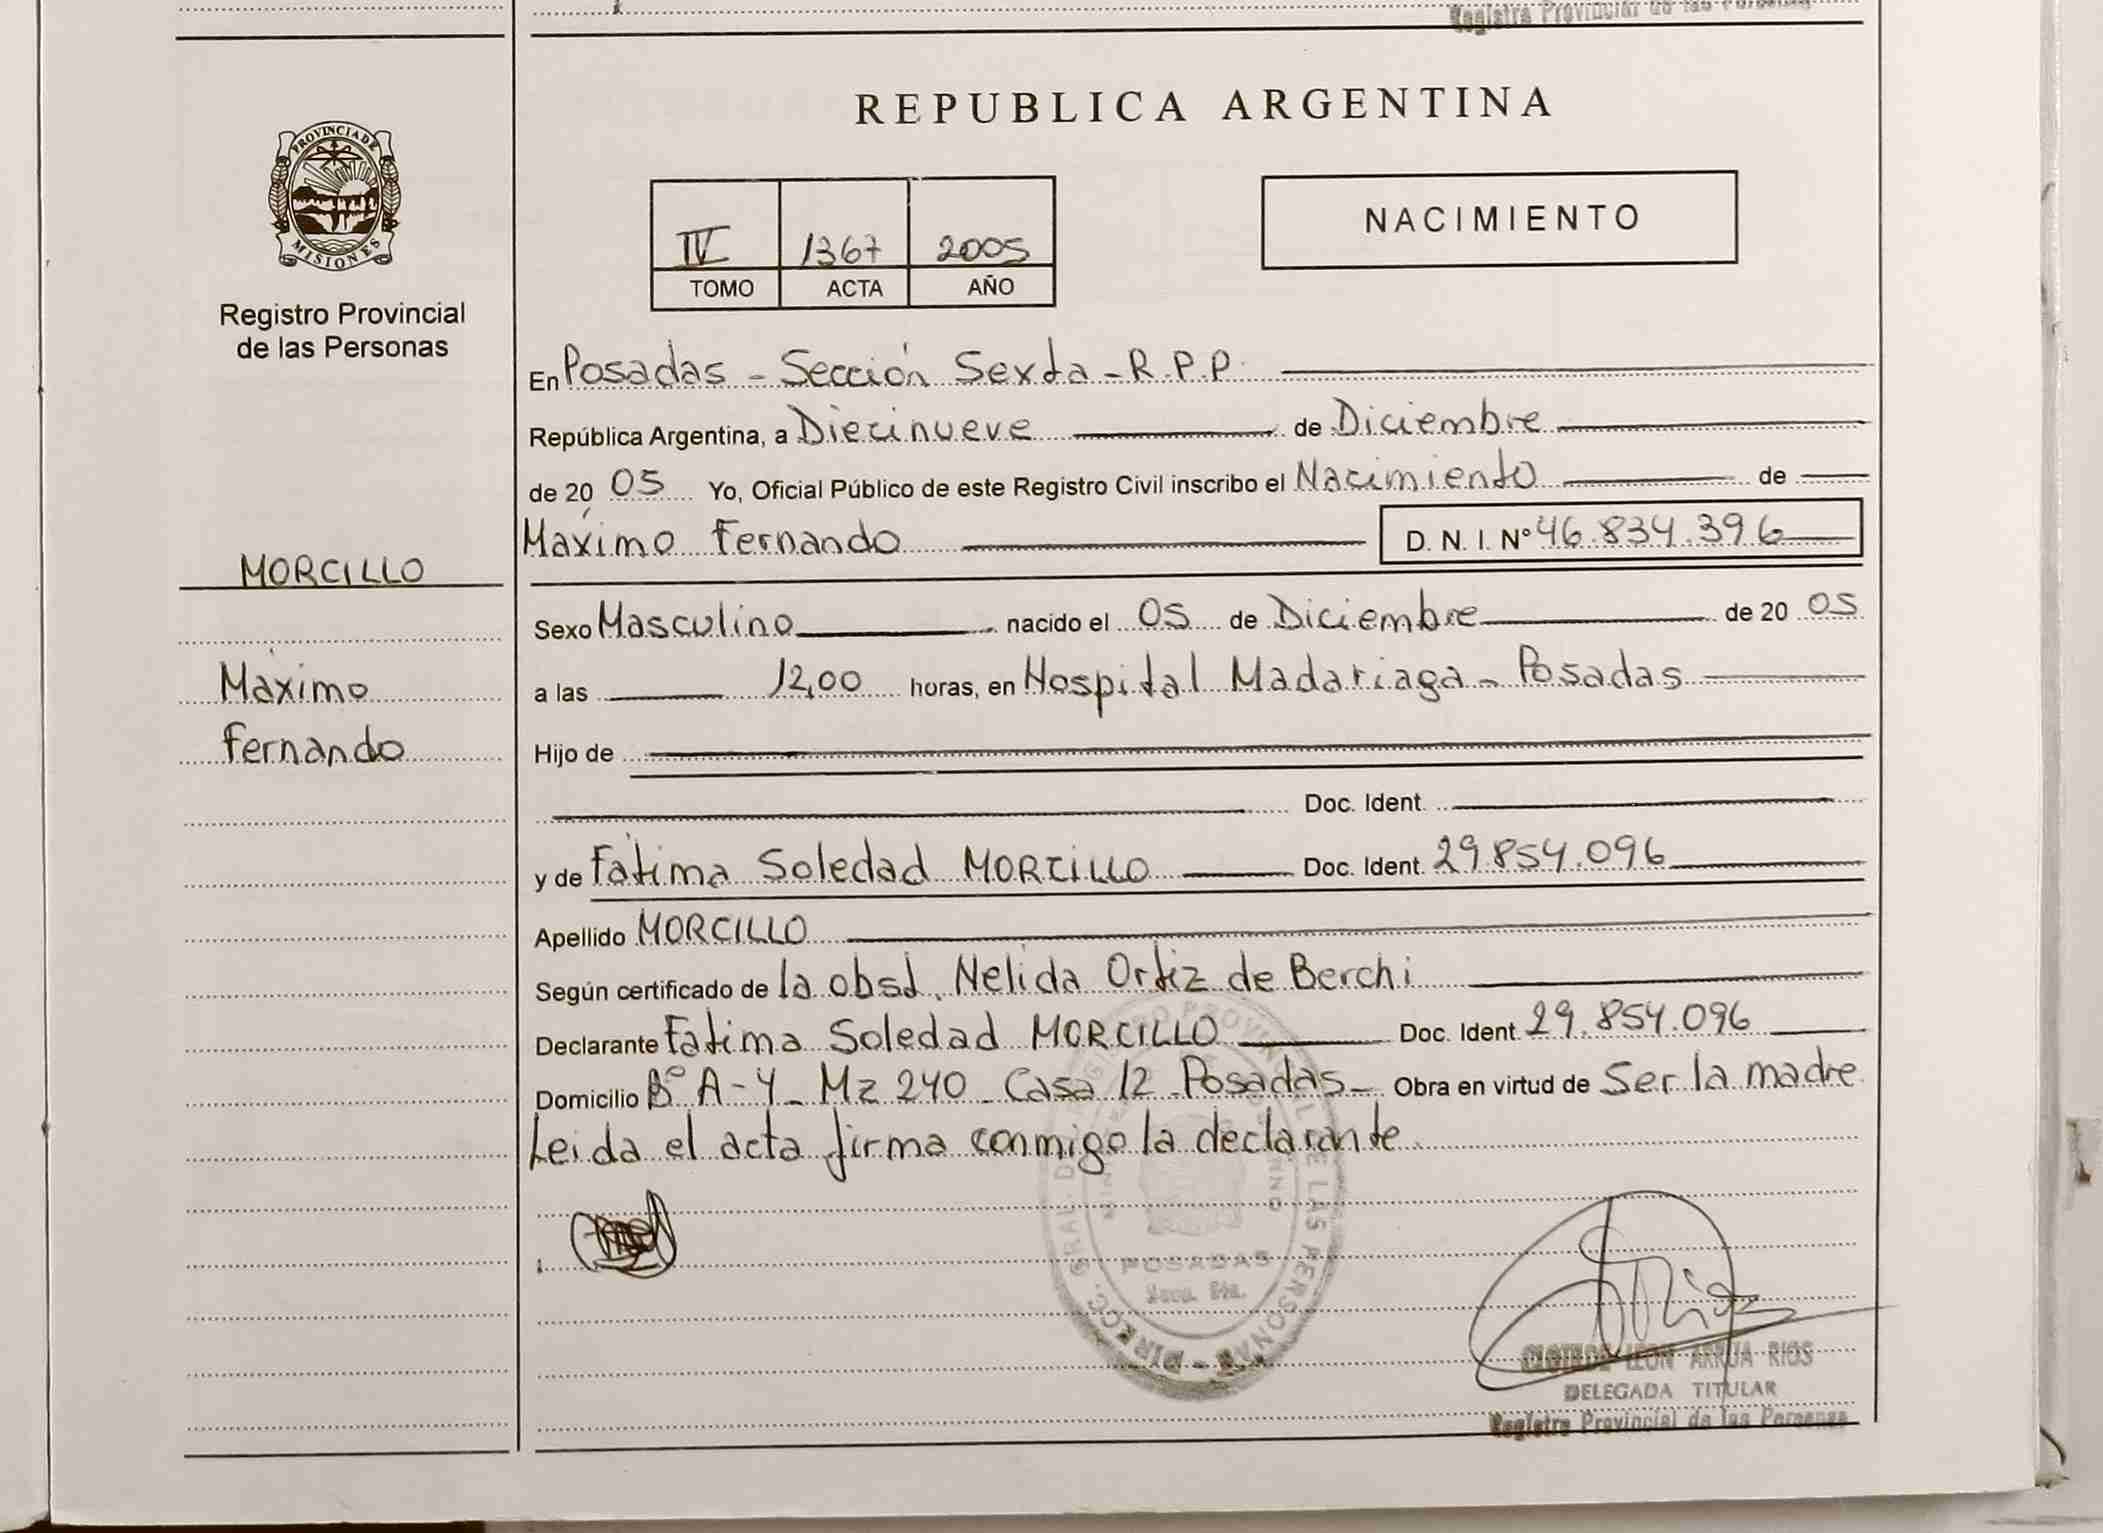 Registro Provincial de las Personas
REPUBLICA ARGENTINA
PROVINCIA DE
MISIONES
Registro Provincial
de las Personas
IV 1367 2005
TOMO ACTA AÑO
NACIMIENTO
En Posadas - Sección Sexta - R.P.P.
República Argentina, a Diecinueve de Diciembre
de 20 05 Yo, Oficial Público de este Registro Civil inscribo el Nacimiento de
Máximo Fernando D. N. I. Nº 46.834.396
MORCILLO
Máximo
Fernando
Sexo Masculino nacido el 05 de Diciembre de 20 05
a las 12,00 horas, en Hospital Madariaga - Posadas
Hijo de
Doc. Ident.
y de Fátima Soledad MORCILLO Doc. Ident. 29.854.096
Apellido MORCILLO
Según certificado de la obst. Nelida Ortiz de Berchi
Declarante Fátima Soledad MORCILLO Doc. Ident. 29.854.096
Domicilio Bº A-4 - Mz 240 - Casa 12 - Posadas - Obra en virtud de Ser la madre
Leida el acta firma conmigo la declarante
DIRECC. GRAL. DE REGISTRO PROVINCIAL DE LAS PERSONAS
POSADAS
Secc. 6ta.
LEON ARRUA RIOS
DELEGADA TITULAR
Registro Provincial de las Personas